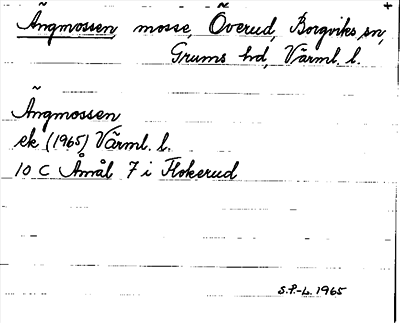 Ängmossen, mosse, Överud, Borgviks sn,
Grums hd, Värml. l.
Ängmossen
ek (1965) Värml. l.
10 C Åmål 7 i Flokerud
S.P.-L. 1965